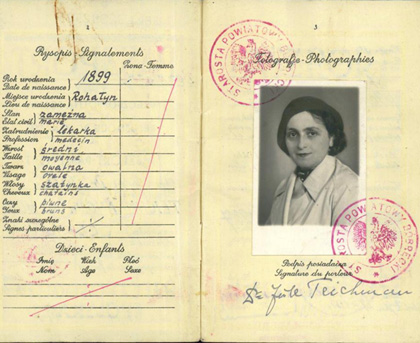 2
Rysopis - Signalements
Żona-Femme
Rok urodzenia
Date de naissance
1899
Miejsce urodzenia
Lieu de naissance
Rohatyn
Stan
Etat civil
zamężna
marié
Zatrudnienie
Profession
lekarka
médecin
Wzrost
Taille
średni
moyenne
Twarz
Visage
owalna
ovale
Włosy
Cheveux
szatynka
chatains
Oczy
Yeux
piwne
bruns
Znaki szczególne
Signes particuliers
Dzieci-Enfants
Imię Wiek Płeć
Nom Age Sexe
3
Fotografie-Photographies
STAROSTA POWIATOWY
STAROSTA POWIATOWY
Podpis posiadacza
Signature du porteur
Dr Teichman